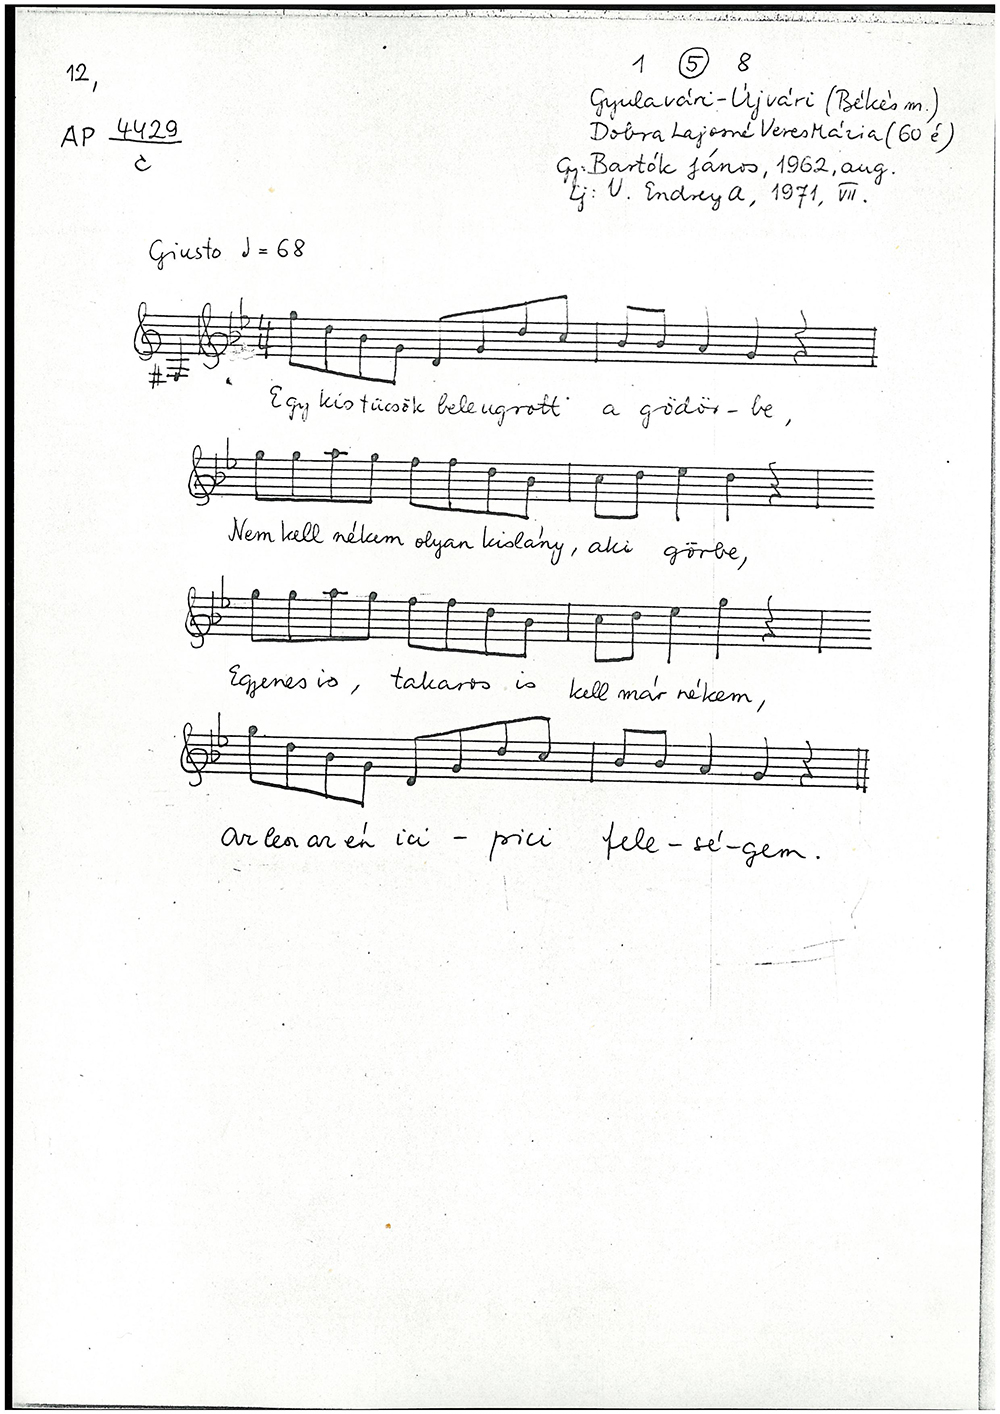 12,
1 5 8
AP 4429
c
Gyulavári-Újvári (Békés m.)
Dobra Lajosné Veres Mária (60 é)
Gy: Bartók János, 1962, aug.
Lj: V. Endrey A, 1971, VII.
Giusto ♩ = 68
4
Egy kis tücsök beleugrott a gödör-be,
Nem kell nékem olyan kislány, aki görbe,
Egyenes is, takaros is kell már nékem,
Az lesz az én ici - pici fele-sé-gem.